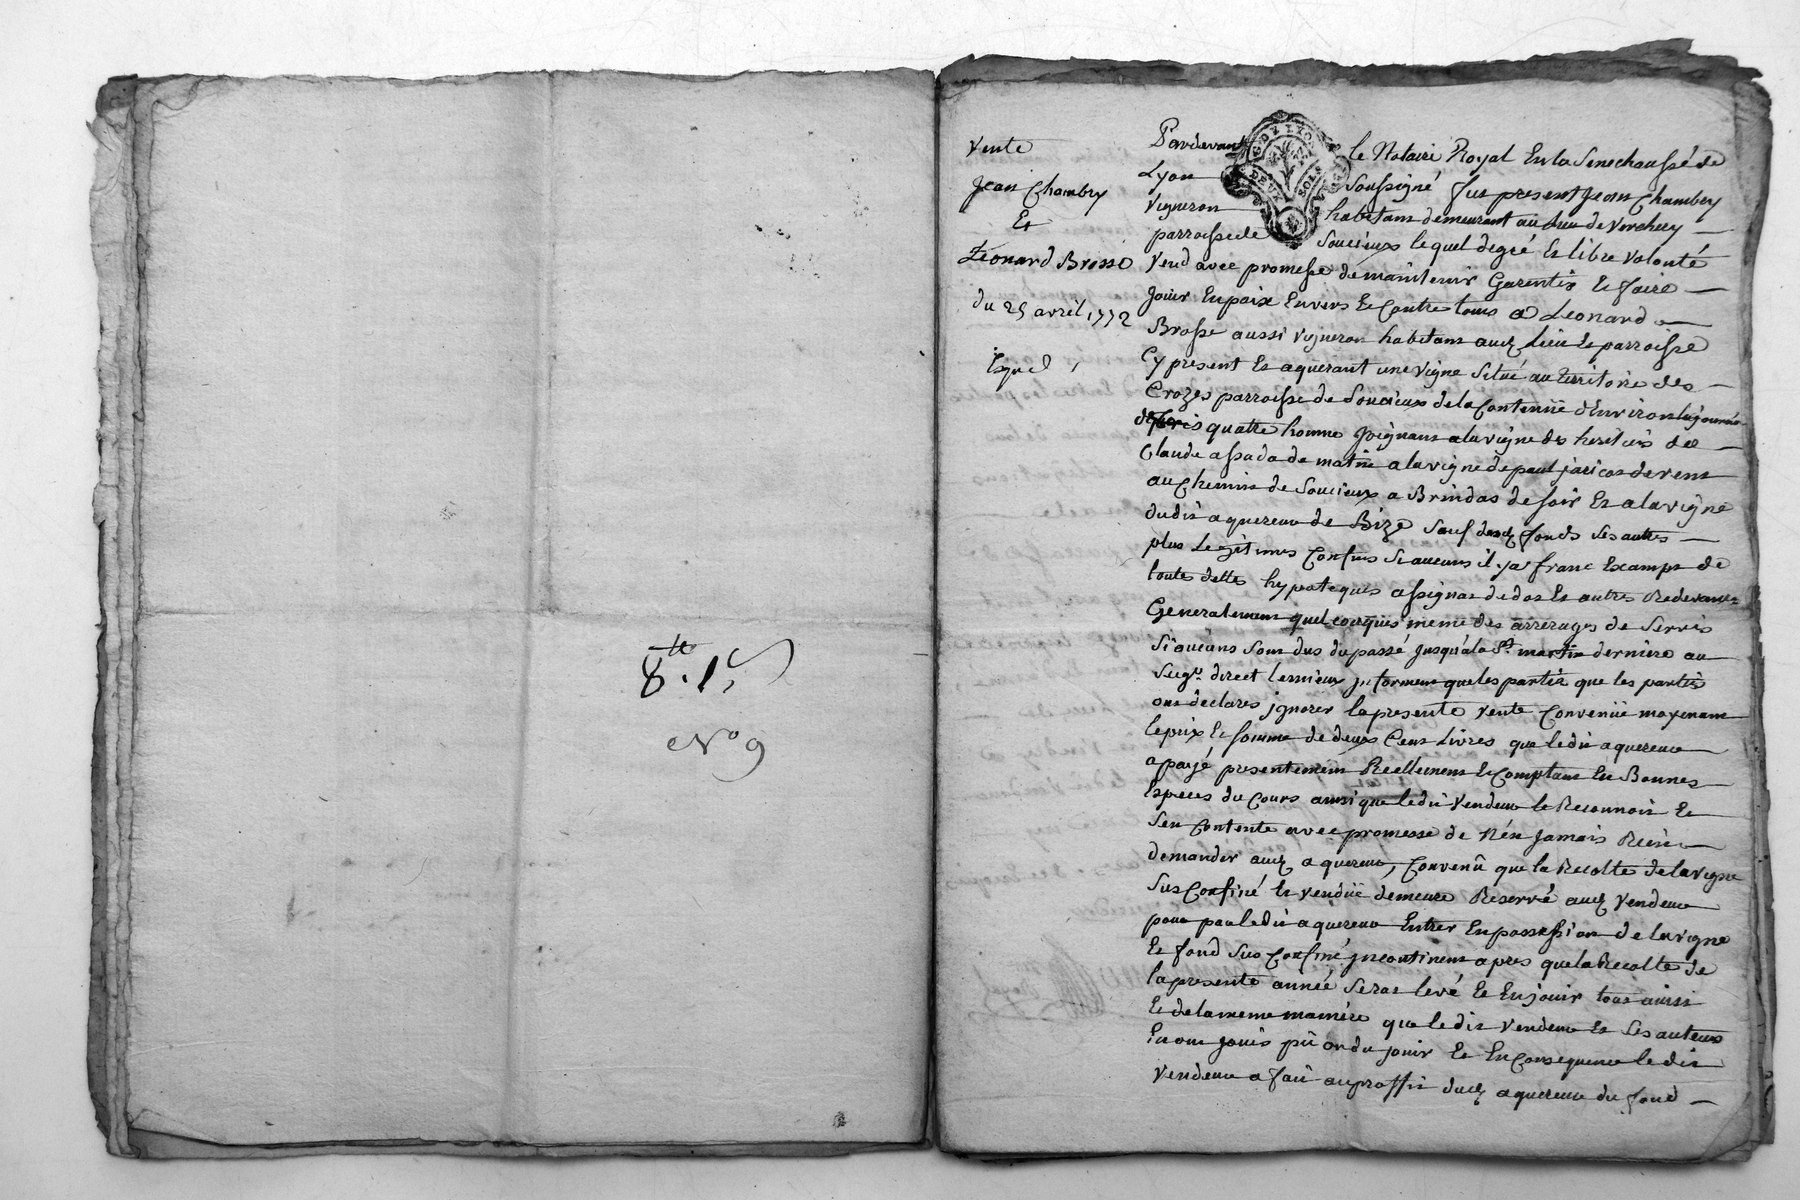 8.tt 1s
No 9
Vente
Jean Chambry
Et
Leonard Brosse
du 25 avril 1772
Expéd
G. DE LYON
DEUX SOLS
Pardevant le Notaire Royal En la Senechaussé de
Lyon soussigné fut present Jean Chambry
vigneron habitant demeurant au lieu de Verchery
parroisse de Soucieux lequel de gré Et libre volonté
vend avec promesse de maintenir Garentir Et faire
Jouir En paix Envers Et Contre tous a Leonard
Brosse aussi vigneron habitant auq lieu Et parroisse
Cy present Et aquerant une vigne Situé au territoire des
Crozes parroisse de Soucieux de la Contenüe d'Environ la journé
de quatre homme Joignant a la vigne des heritiers de
Claude assada de matin a la vigne de paul jaricot de vent
au Chemin de Soucieux a Brindas de soir Et a la vigne
dudit aquereur de Bize Sauf desq fonds Ses autres
plus Legitimes Confins Si aucuns il ya franc Exampt de
toute dette hypoteques assignat de dot Et autres Redevances
Generalement quelconques meme des arrerages de Servis
Si aucuns Sont dus du passé Jusqu'a la St martin derniere au
Seigr. direct les mieux jnformer que les partis
ont declarés jgnorer la presente vente Convenüe moyenant
le prix Et somme de deux Cent Livres que ledit aquereur
a payé presentement Réellement Et Comptant En Bonnes
Especes du Cours ainsi que ledit vendeur le Reconnoit Et
Sen Contente avec promesse de Nén Jamais Rien
demander auq aquereur, Convenû que la Recolte de la vigne
Sus Confiné Et vendüe demeure Réservé auq vendeur
pour par ledit aquereur Entrer En possession de la vigne
Et fond Sus Confiné jncontinent apres que la Recolte de
la presente année Sera levé Et En jouir tout ainsi
Et de la meme maniére que ledit vendeur Et Ses auteurs
En ont jouis pû ou du jouir Et En Consequence ledit
vendeur a fait au proffit dudq aquereur du fond